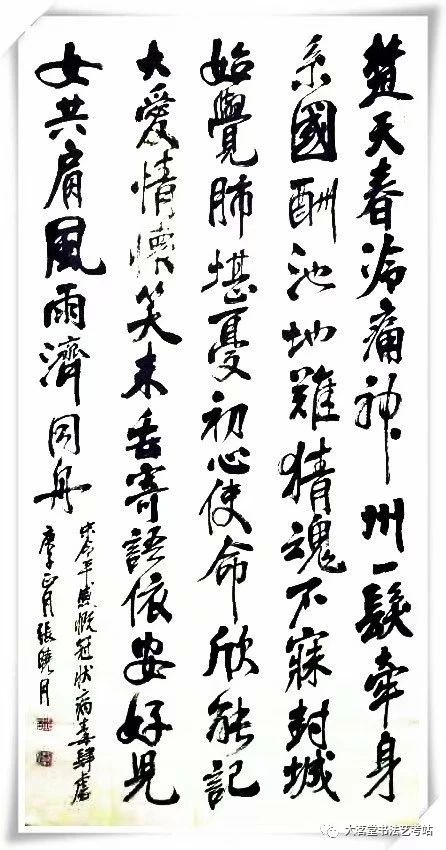 楚天春冷痛神州一髮牽身
系國酬池地難猜魂不寐封城
始覺肺堪憂初心使命欣能記
大愛情懷笑未丢寄語依安好兒
女共肩風雨濟同舟
感慨冠狀病毒肆虐
庚子正月張曉月
大茗堂书法艺考站